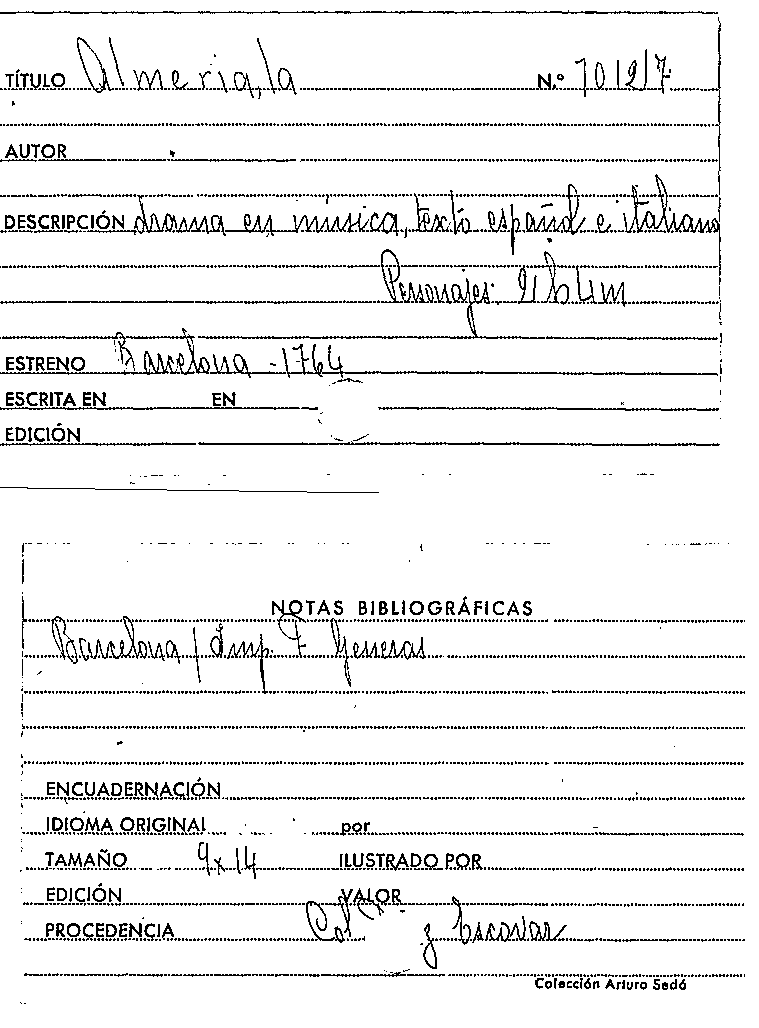 TÍTULO Almeria, la N.º 70127
AUTOR
DESCRIPCIÓN drama en música, texto español e italiano
Personajes:
ESTRENO Barcelona - 1764
ESCRITA EN EN
EDICIÓN
NOTAS BIBLIOGRÁFICAS
Barcelona / Imp. F. Generas
ENCUADERNACIÓN
IDIOMA ORIGINAL por
TAMAÑO 9x14 ILUSTRADO POR
EDICIÓN VALOR
PROCEDENCIA Col y Escovar
Colección Arturo Sedó